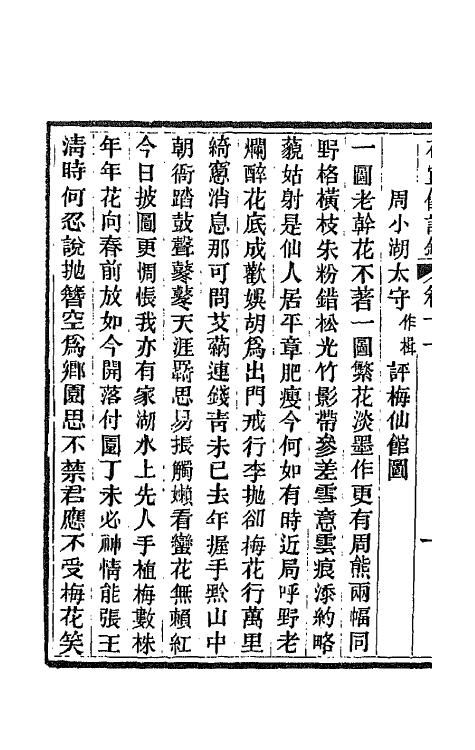 卷十一
一
周小湖太守作楫評梅仙館圖
一圖老幹花不著一圖繁花淡墨作更有周熊兩幅同
野格橫枝朱粉錯松光竹影帶參差雪意雲痕添約略
藐姑射是仙人居平章肥瘦今何如有時近局呼野老
爛醉花底成歡娛胡爲出門戒行李拋卻梅花行萬里
綺窻消息那可問艾蒳連錢靑未已去年握手黔山中
朝衙踏鼓聲鼕鼕天涯羇思易振觸嬾看蠻花無賴紅
今日披圖更惆悵我亦有家湖水上先人手植梅數株
年年花向春前放如今開落付園丁未必神情能張王
淸時何忍說拋簪空爲鄕園思不禁君應不受梅花笑